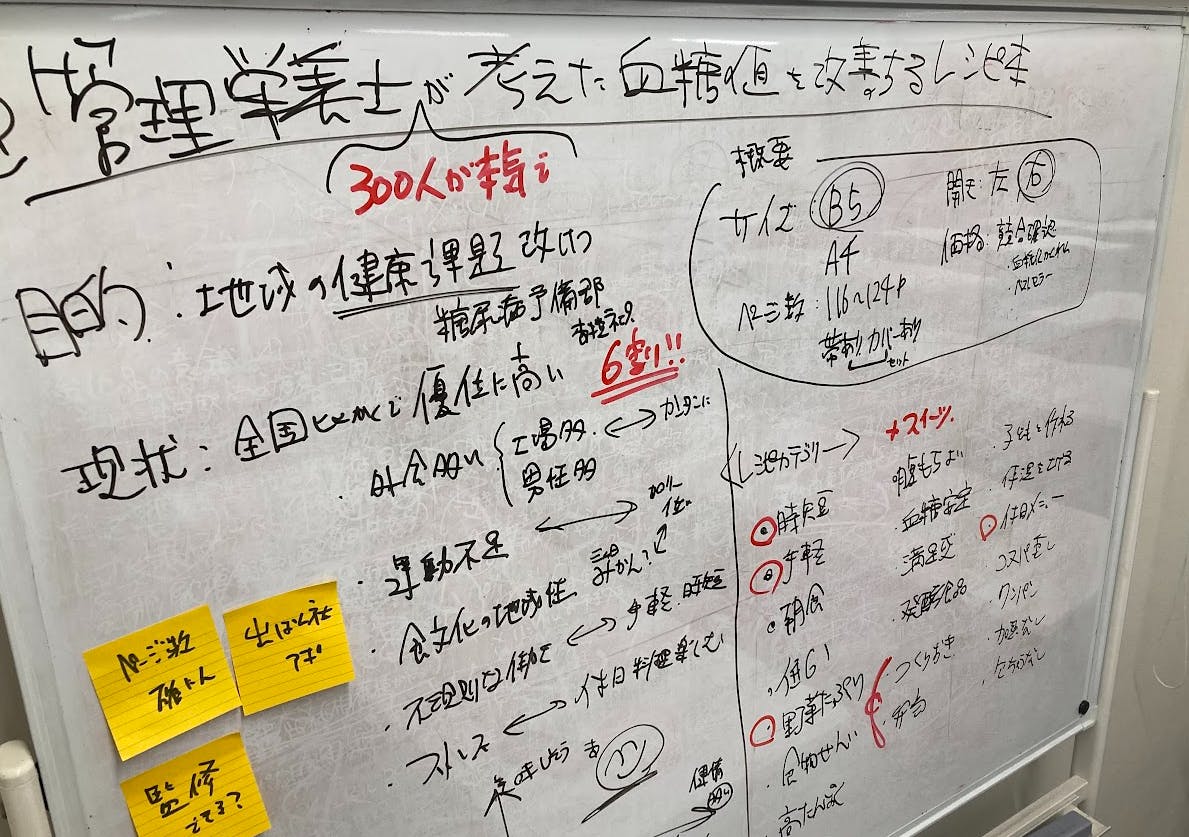 管理栄養士が考えた血糖値を改善するレシピ本
300人が本気で
目的:地域の健康課題改善
糖尿病予備群
6割り!!
現状:全国と比かくして優位に高い
・外食多い
工場多
男性多
カンタンに
・運動不足
カロリー低い
・食文化の地域性
みかん?
・不規則な働き
手軽・時短
・ストレス
休日料理楽しむ
概要
サイズ B5
A4
ページ数:116〜124P
帯あり カバーあり
セット
開き:左 右
価格:
レシピカテゴリー
+スイーツ
・時短
・手軽
・朝食
・低GI
・野菜たっぷり
・食物せんい
・高たんぱく
腹もちよい
・血糖安定
満足感
・発酵食品
・つくりおき
・弁当
・子どもと作れる
・体温を上げる
・休日メニュー
・コスパ良し
・ワンパン
・加熱なし
ページ数
確にん
出ぱん社
アポ
監修
できる?